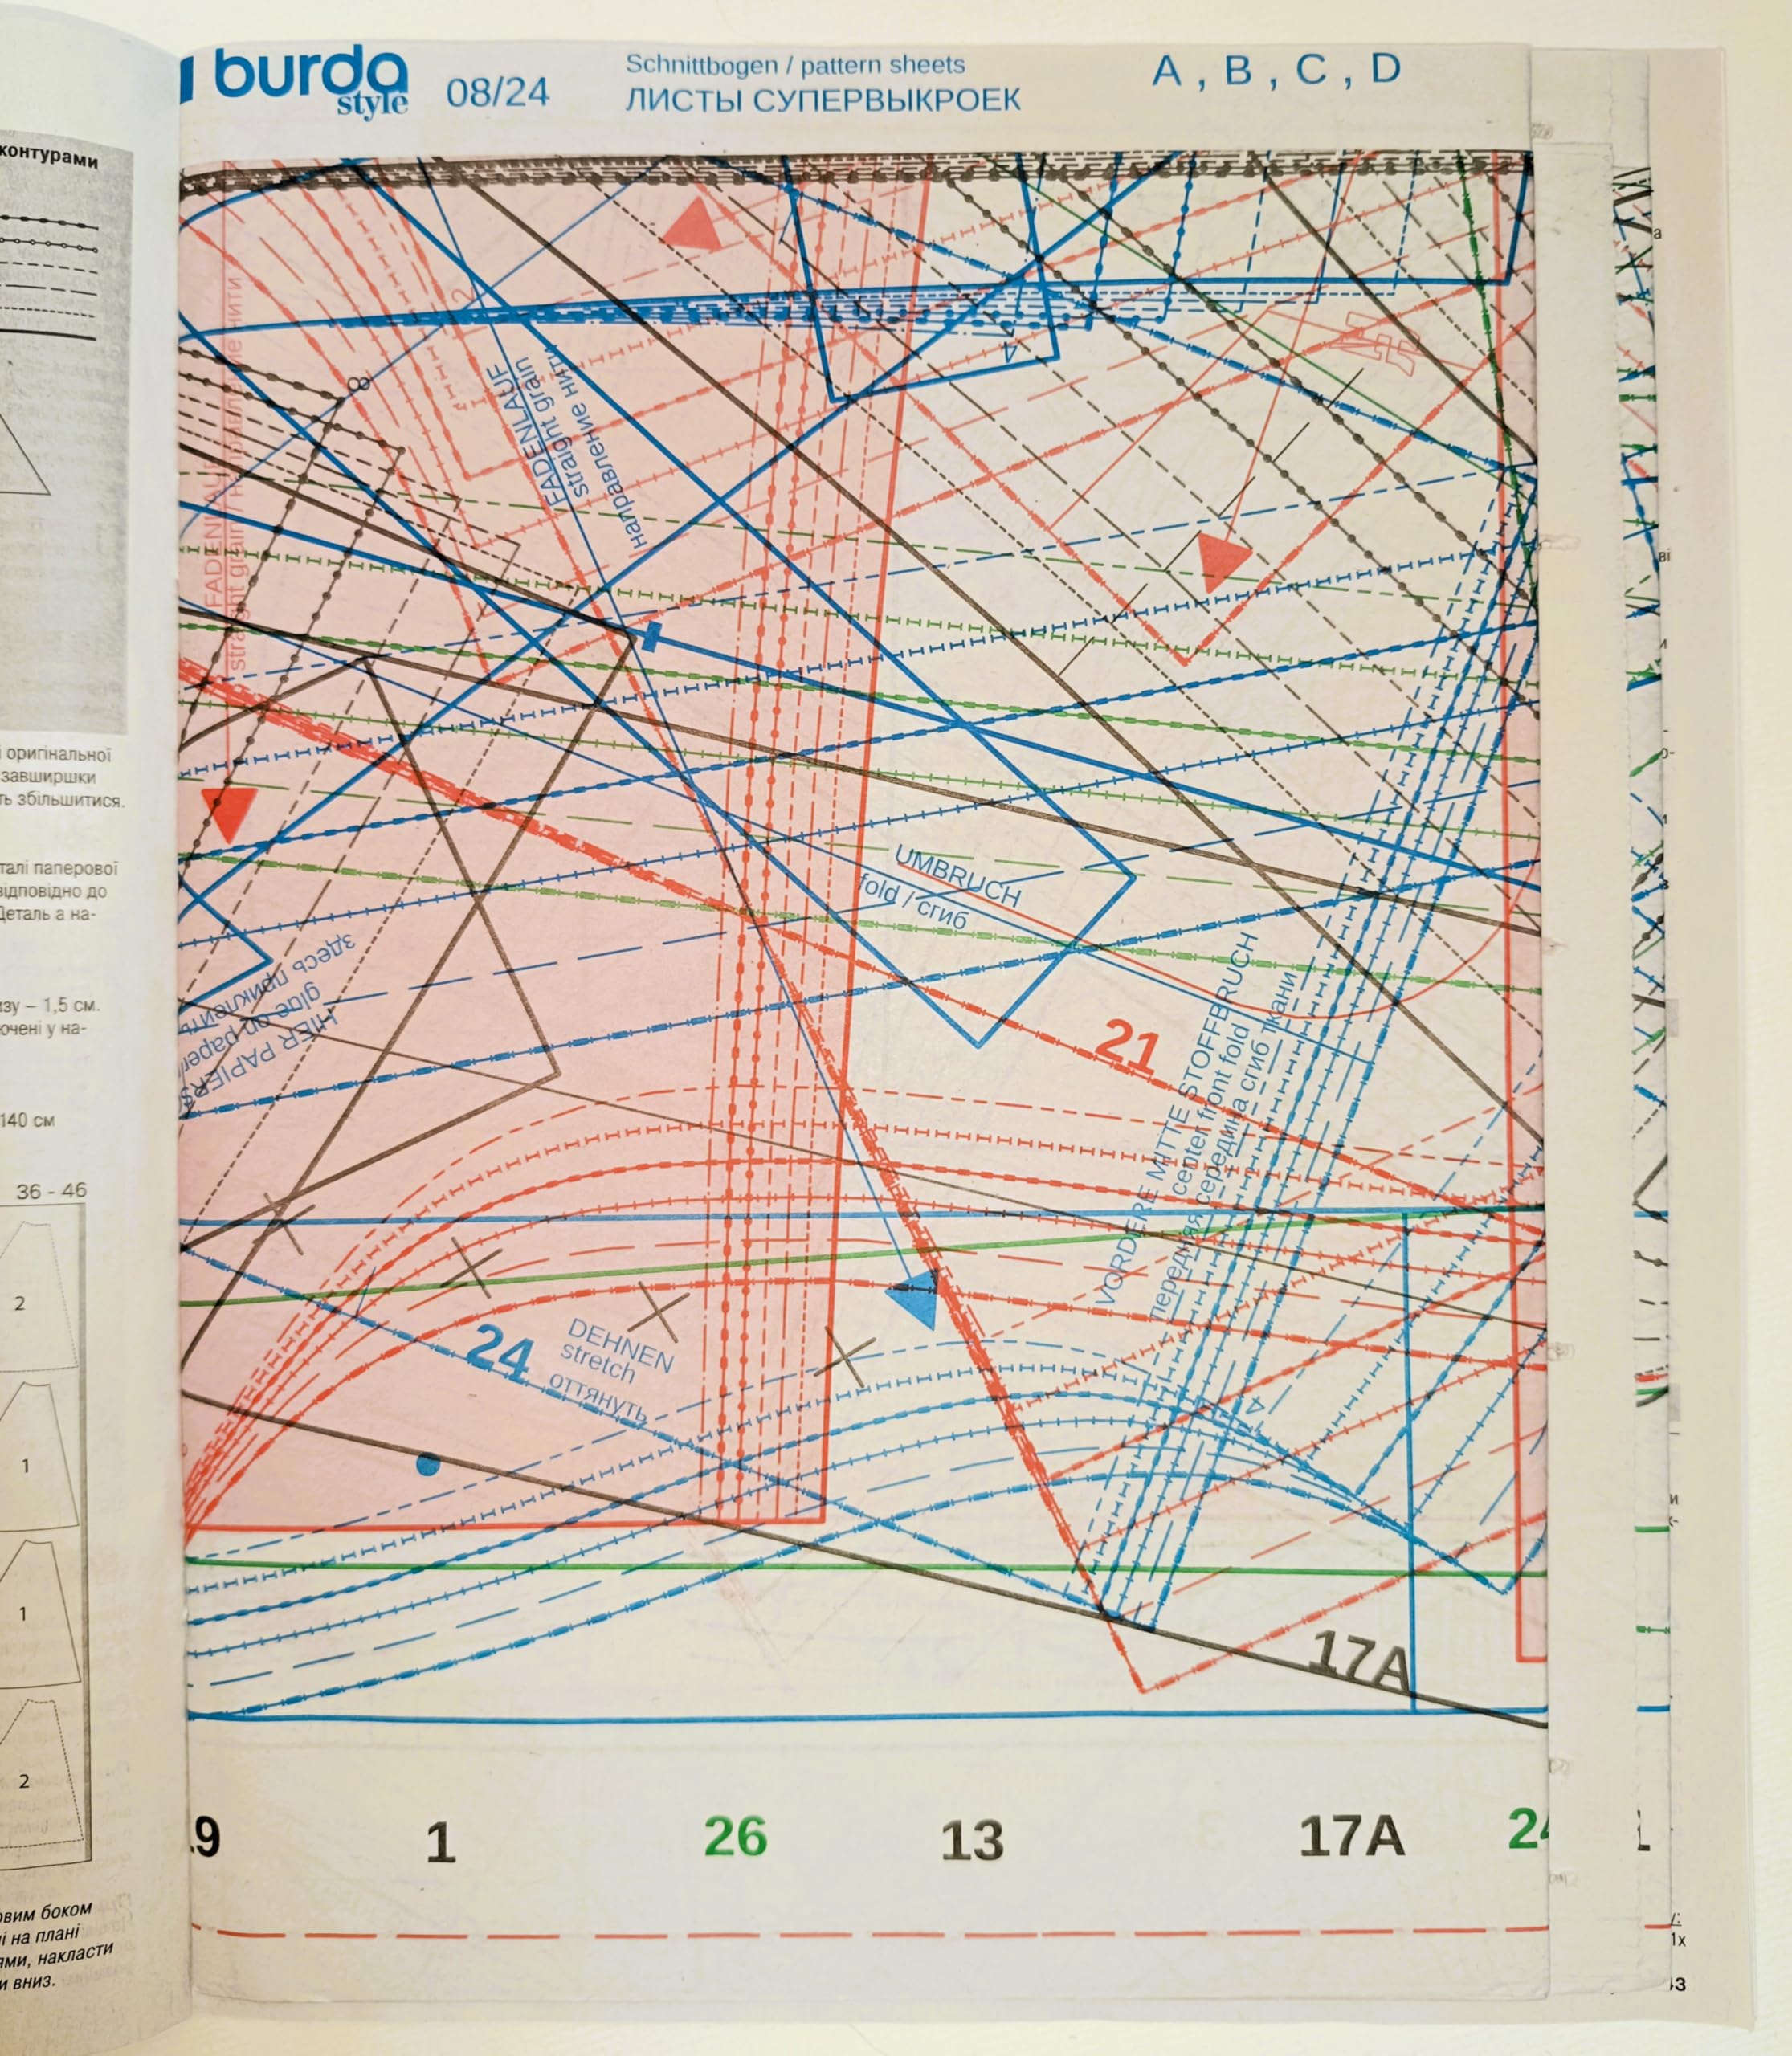 burda
style
08/24
Schnittbogen / pattern sheets
ЛИСТЫ СУПЕРВЫКРОЕК
A , B , C , D
контурами
і оригінальної
завширшки
ть збільшитися.
талі паперової
відповідно до
Деталь а на-
изу – 1,5 см.
ючені у на-
140 см
36 - 46
2
1
1
2
овим боком
і на плані
ями, накласти
и вниз.
2
8
4
FADENLAUF
straight grain
направление нити
FADENLAUF
straight grain / направление нити
UMBRUCH
fold / сгиб
здесь приклеить
glue on paper
HIER PAPIER
21
VORDERE MITTE STOFFBRUCH
center front fold
передняя середина сгиб ткани
24
DEHNEN
stretch
оттянуть
4
17A
9
1
26
13
17A
1x